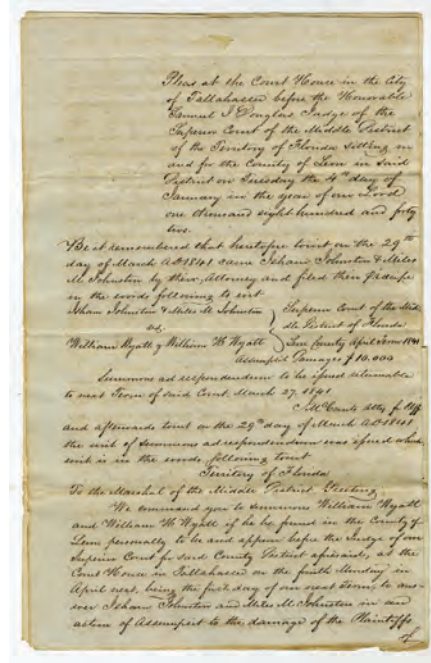 Pleas at the Court House in the City
of Tallahassee before the Honorable
Samuel J Douglas Judge of the
Superior Court of the Middle District
of the Territory of Florida sitting in
and for the County of Leon in said
District on Tuesday the 4th day of
January in the year of our Lord
one thousand eight hundred and forty
two.
Be it remembered that heretofore towit on the 29th
day of March AD 1841 came Isham Johnston & Miles
M Johnston by their Attorney and filed their
in the words following to wit
Isham Johnston & Miles M Johnston } Superior Court of the Mid-
vs. } dle District of Florida
William Wyatt & William H Wyatt } Leon County April Term 1841
Assumpsit Damages $10.000
Summons ad respondendum to be issued returnable
to next Term of said Court March 27. 1841
atty for Plff
and afterwards towit on the 29th day of March AD 1841
the writ of summons ad respondendum was issued which
writ is in the words following towit
Territory of Florida
To the Marshal of the Middle District Greeting
We command you to summons William Wyatt
and William H Wyatt if he be found in the County of
Leon personally to be and appear before the Judge of our
Superior Court for said County District aforesaid, at the
Court House in Tallahassee on the fourth Monday in
April next, being the first day of our next term, to ans-
wer Isham Johnston and Miles M Johnston in an
action of Assumpsit to the damage of the Plaintiffs
of